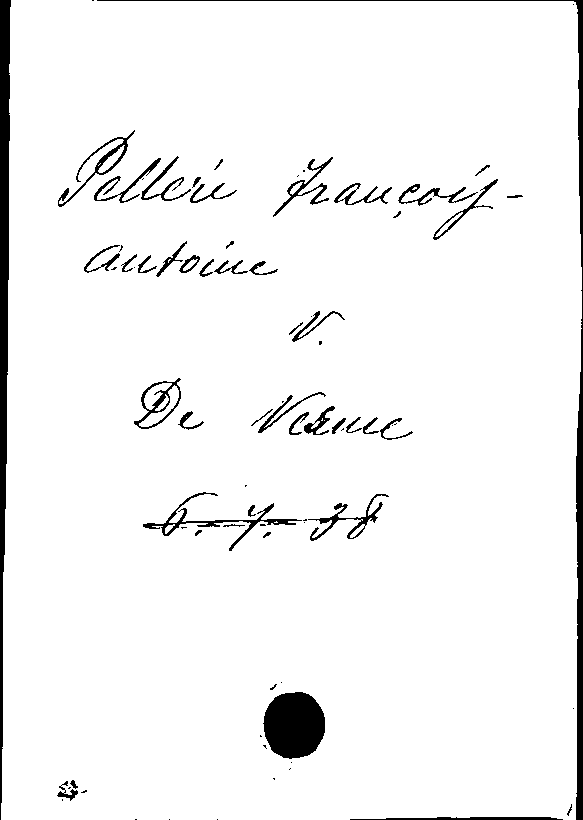 Pelleri François-
Antoine
V.
De Verme
6. 7. 38